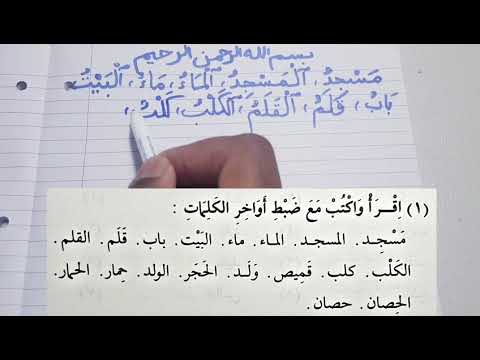 بسم الله الرحمن الرحيم
مَسْجِدٌ، اَلْمَسْجِدُ، اَلْمَاءُ، مَاءٌ، اَلْبَيْتُ
بَابٌ، قَلَمٌ، اَلْقَلَمُ، اَلْكَلْبُ، كَلْبٌ،
(١) اِقْـرَأْ وَاكْتُبْ مَعَ ضَبْطِ أَوَاخِرِ الكَلِمَاتِ :
مَسْجِـد. المسجد. المـاء. ماء. البَيْت. باب. قَلَم. القلم.
الكَلْب. كلب. قَمِيص. وَلَـد. الحَجَر. الولد. حِمار. الحمار.
الحِصان. حصان.